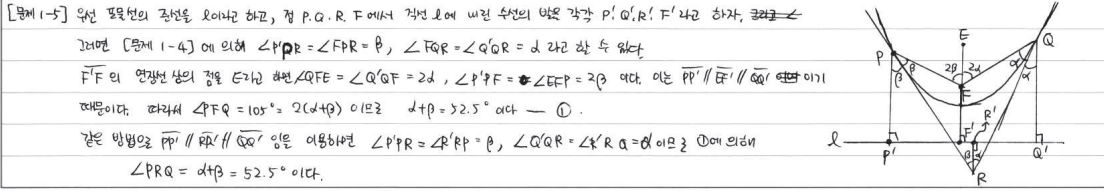 [문제 1-5] 우선 포물선의 준선을 l이라고 하고, 점 P, Q, R, F 에서 직선 l에 내린 수선의 발을 각각 P', Q', R', F' 라고 하자.
그러면 [문제 1-4] 에 의해 ∠P'PR = ∠FPR = β, ∠FQR = ∠Q'QR = α 라고 할 수 있다
F'F 의 연장선 상의 점을 E라고 하면 ∠QFE = ∠Q'QF = 2α, ∠P'PF = ∠EFP = 2β 이다. 이는 PP' // EF' // QQ' 이기
때문이다. 따라서 ∠PFQ = 105° = 2(α+β) 이므로 α+β = 52.5° 이다 — ①.
같은 방법으로 PP' // RR' // QQ' 임을 이용하면 ∠P'PR = ∠R'RP = β, ∠Q'QR = ∠R'RQ = α 이므로 ①에 의해
∠PRQ = α+β = 52.5° 이다.
E
Q
P
2β 2α
α
α
β
β
F
F'
R'
l
P'
β α
Q'
R